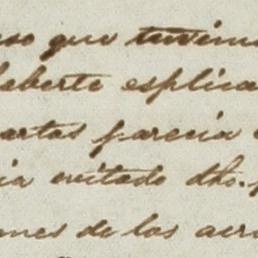 eso que tuvimo
haberte esplica
cartas parecia
ia evitado dho.
ones de los acre